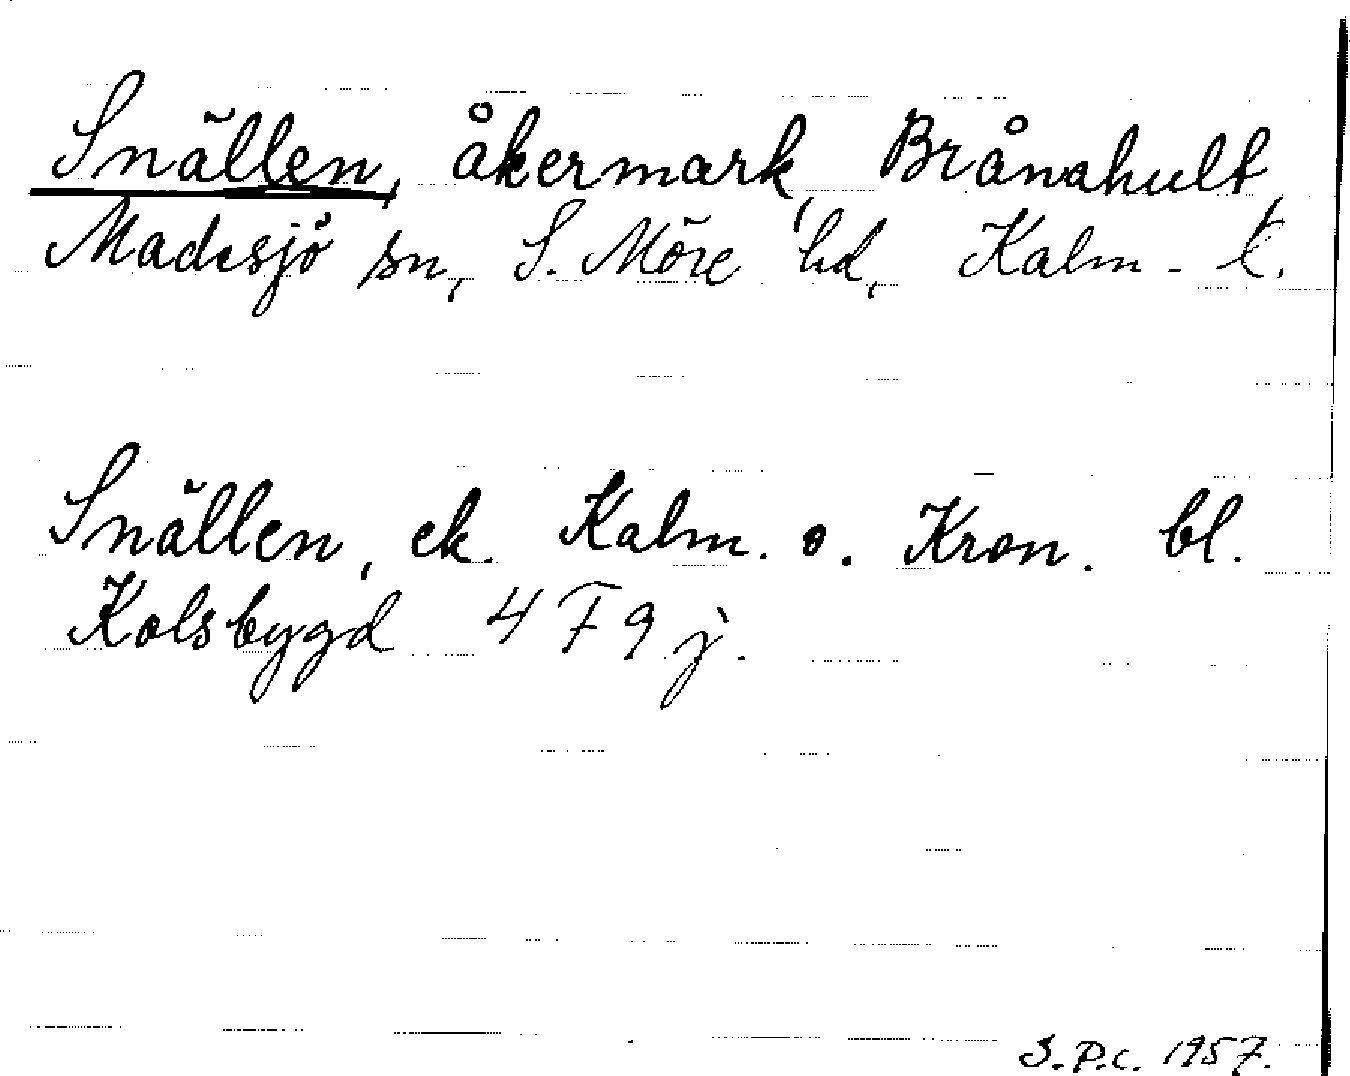 Snällen, åkermark, Brånahult,
Madesjö sn, S. Möre hd, Kalm. l.
Snällen, ek. Kalm. o. Kron. bl.
Kolsbygd 4 F 9 j.
S.P.C. 1957.